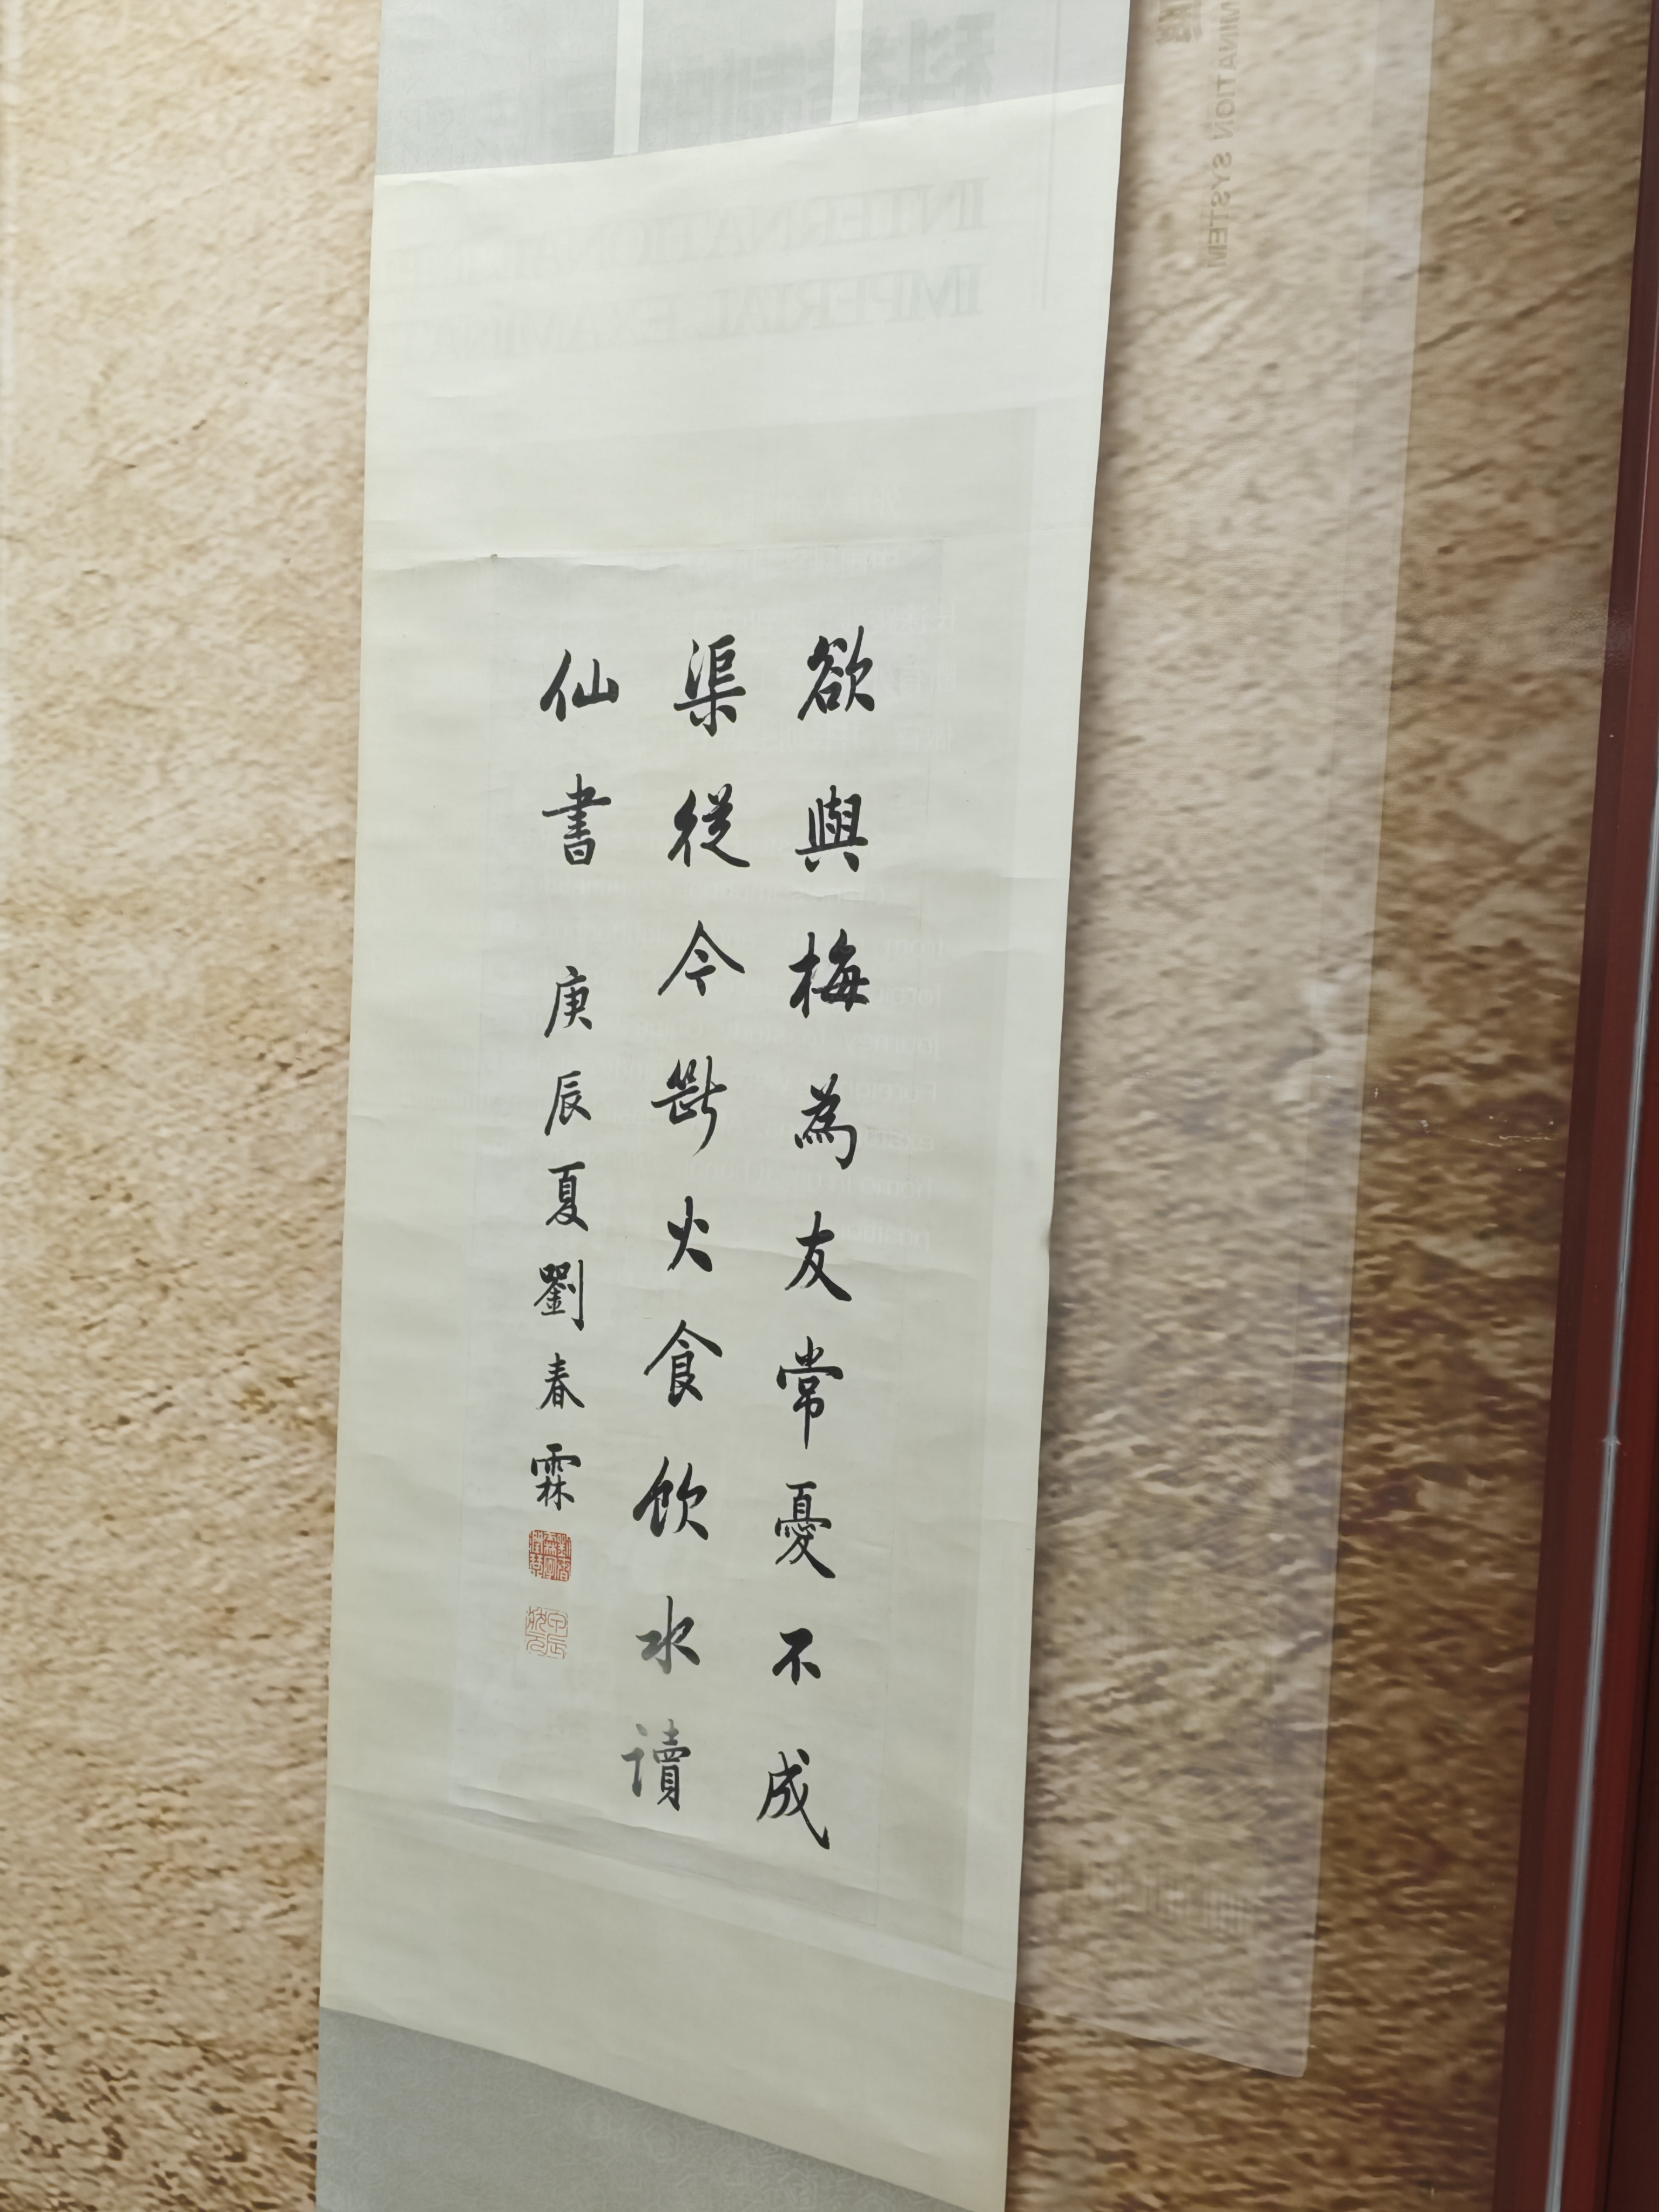 欲與梅為友常憂不成
渠從今斷火食飲水讀
仙書 庚辰夏劉春霖
INTERNATIONAL
IMPERIAL EXAMINAT
MINATION SYSTEM